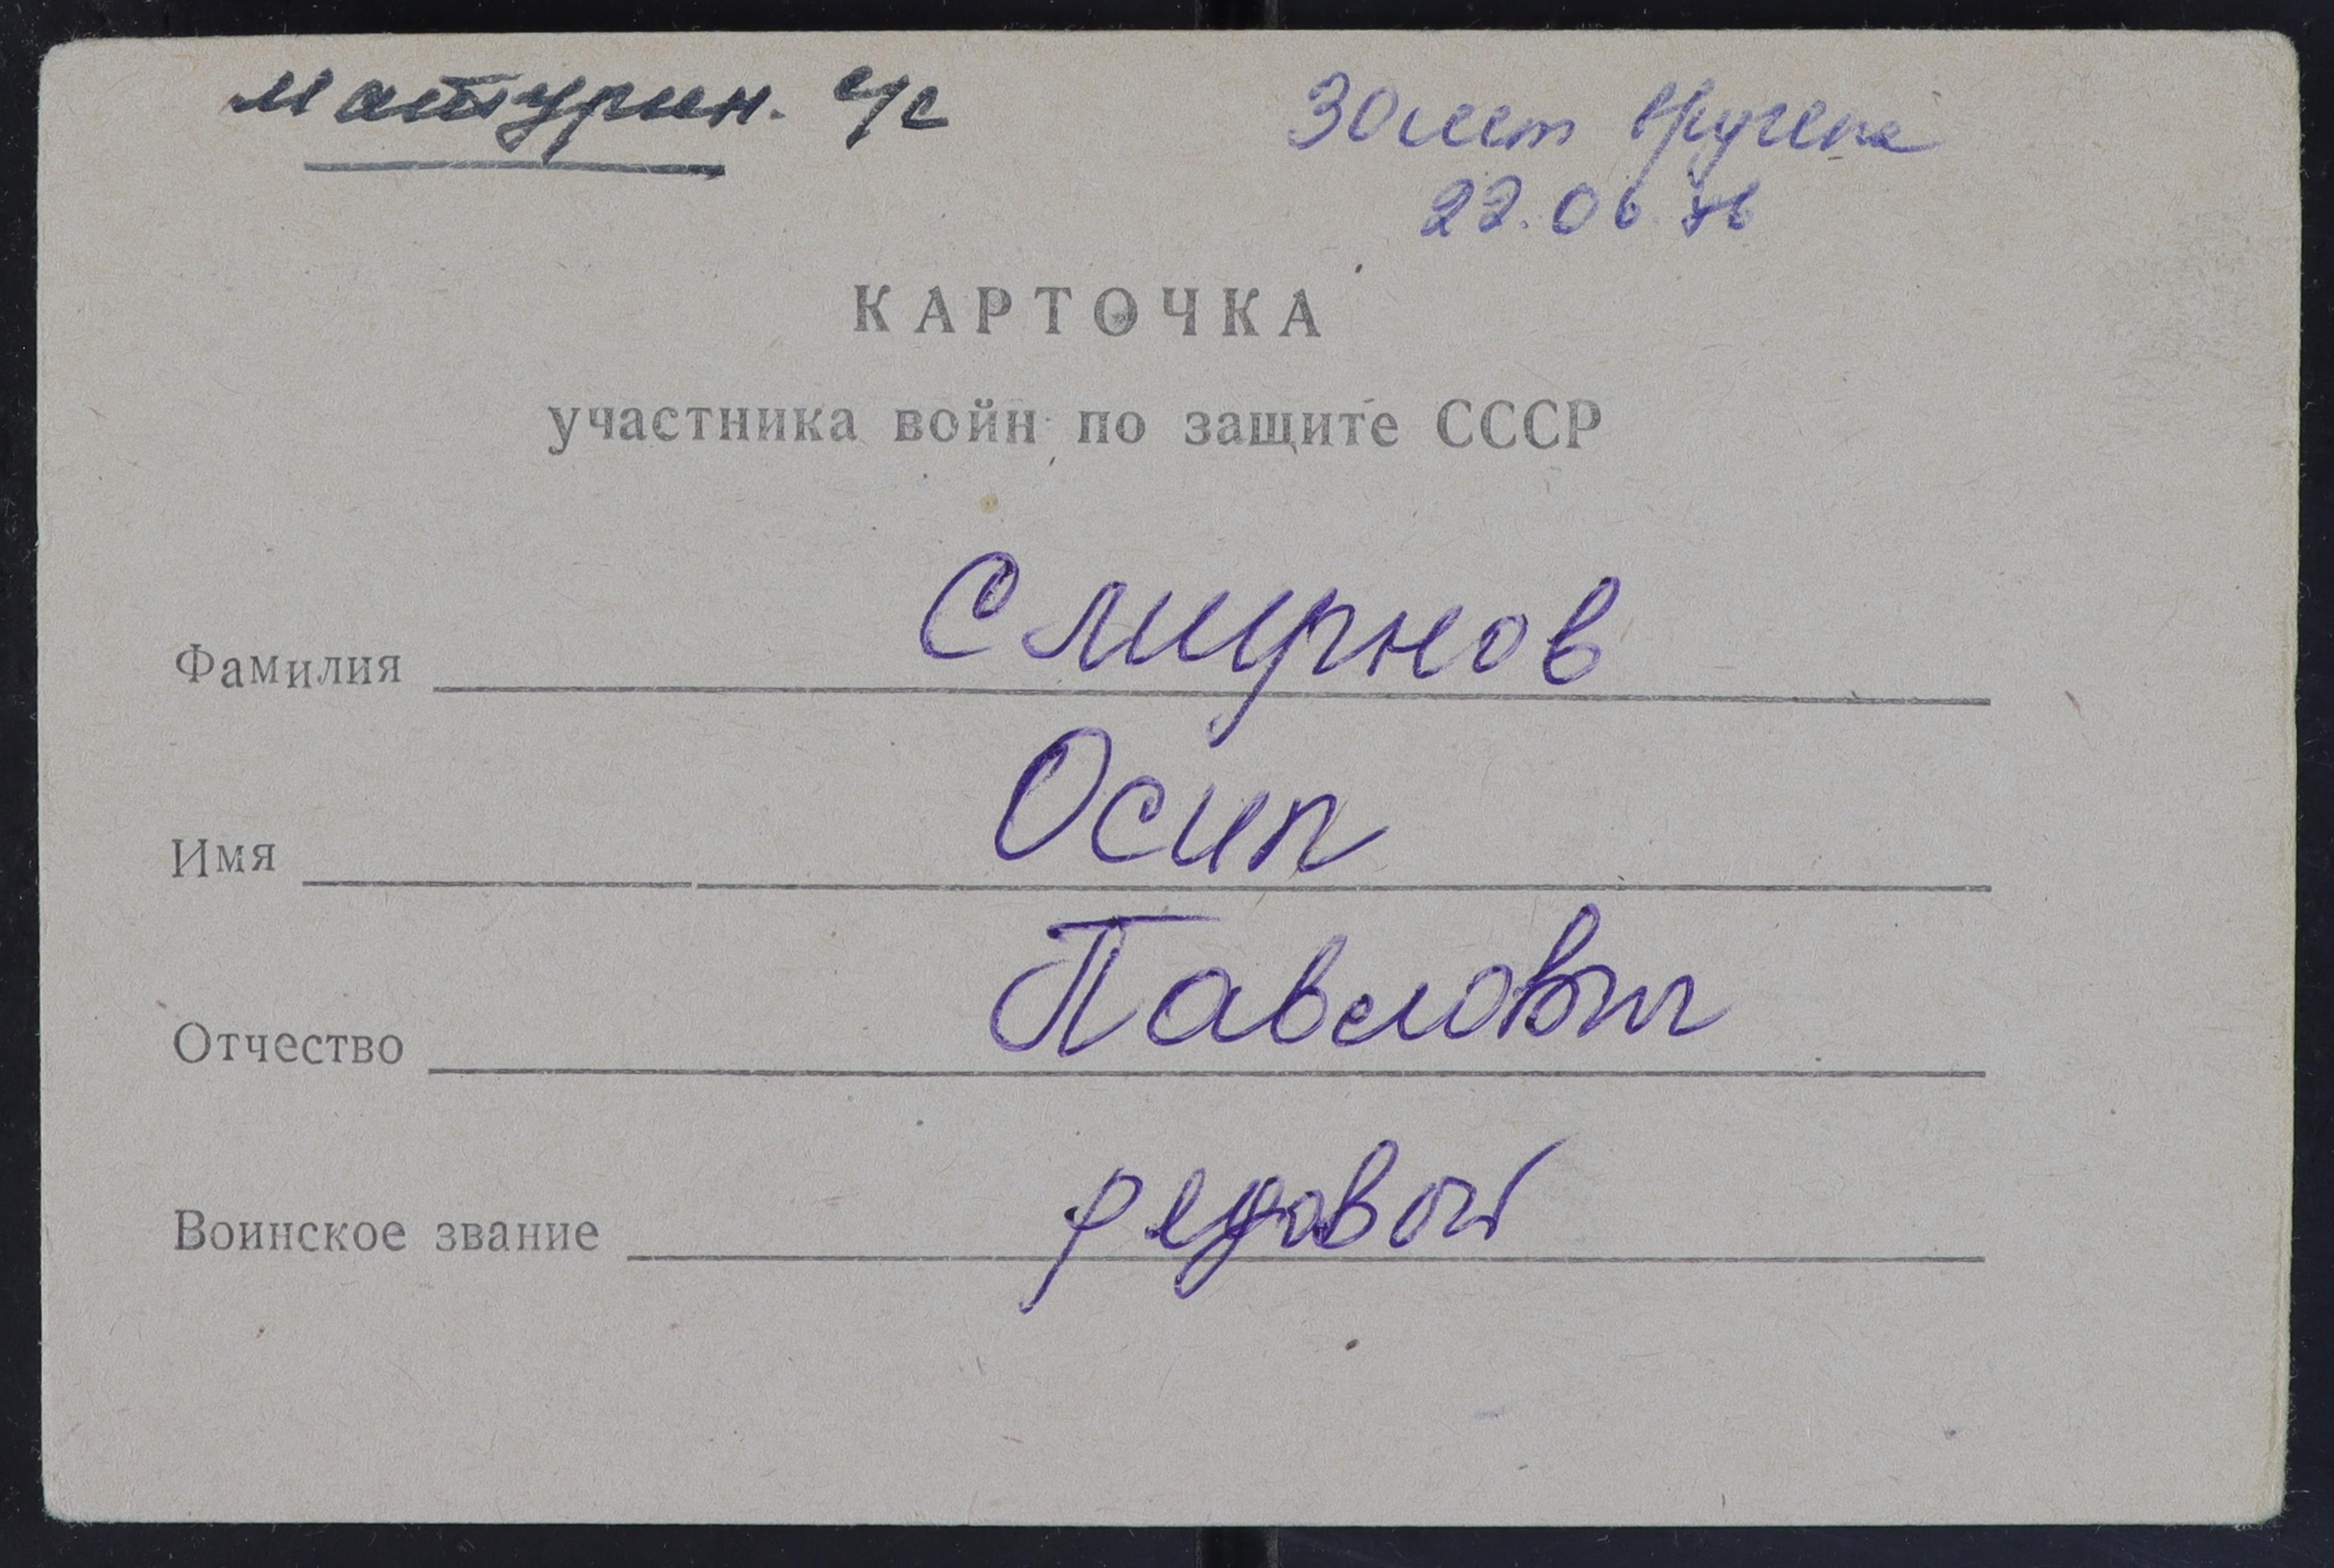 Матурин. с/с
30 лет вручена
22.06.76
КАРТОЧКА
участника войн по защите СССР
Фамилия Смирнов
Имя Осип
Отчество Павлович
Воинское звание редовой